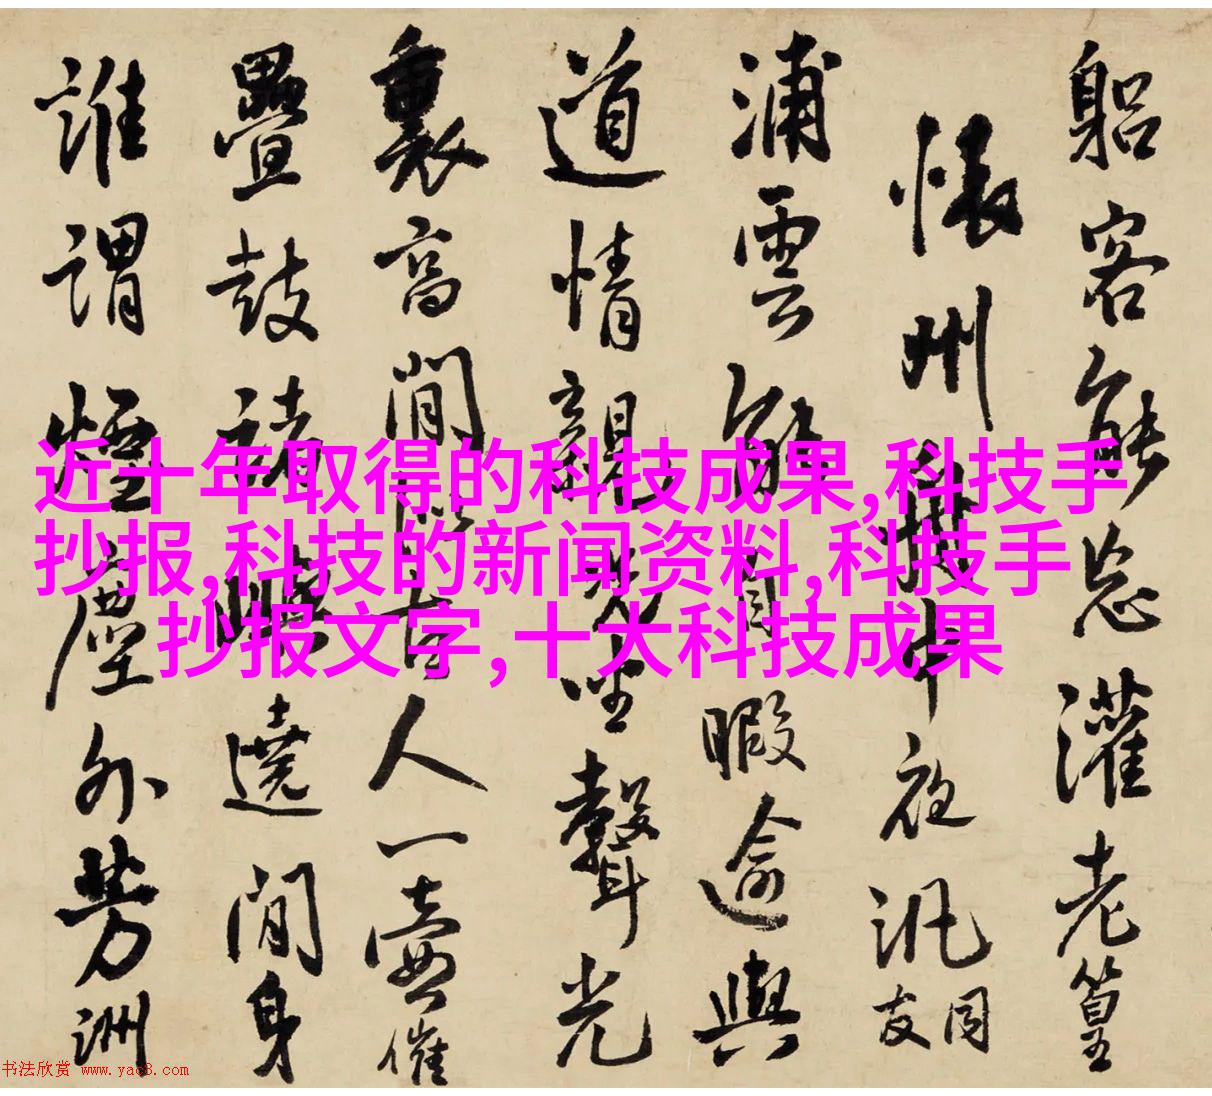 躳客能忘灌老篁
懷州
中夜汎
同
友
浦雲
自暇逾與
道情親
坐聲光
裏高閒
人一壺催
疊鼓
遶閒身
誰謂煙塵外芳洲
近十年取得的科技成果,科技手
抄报,科技的新闻资料,科技手
抄报文字,十大科技成果
书法欣赏 www.yac8.com